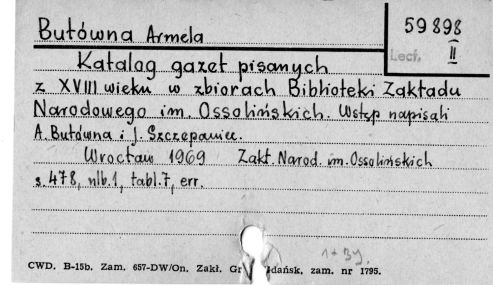 Butówna Armela
59898
Lect. II
Katalog gazet pisanych
z XVIII wieku w zbiorach Biblioteki Zakładu
Narodowego im. Ossolińskich. Wstęp napisali
A. Butówna i J. Szczepaniec.
Wrocław 1969 Zakł. Narod. im. Ossolińskich
s. 478, nlb. 1, tabl. 7, err.
1+By.
CWD. B-15b. Zam. 657-DW/On. Zakł. Gr dańsk, zam. nr 1795.